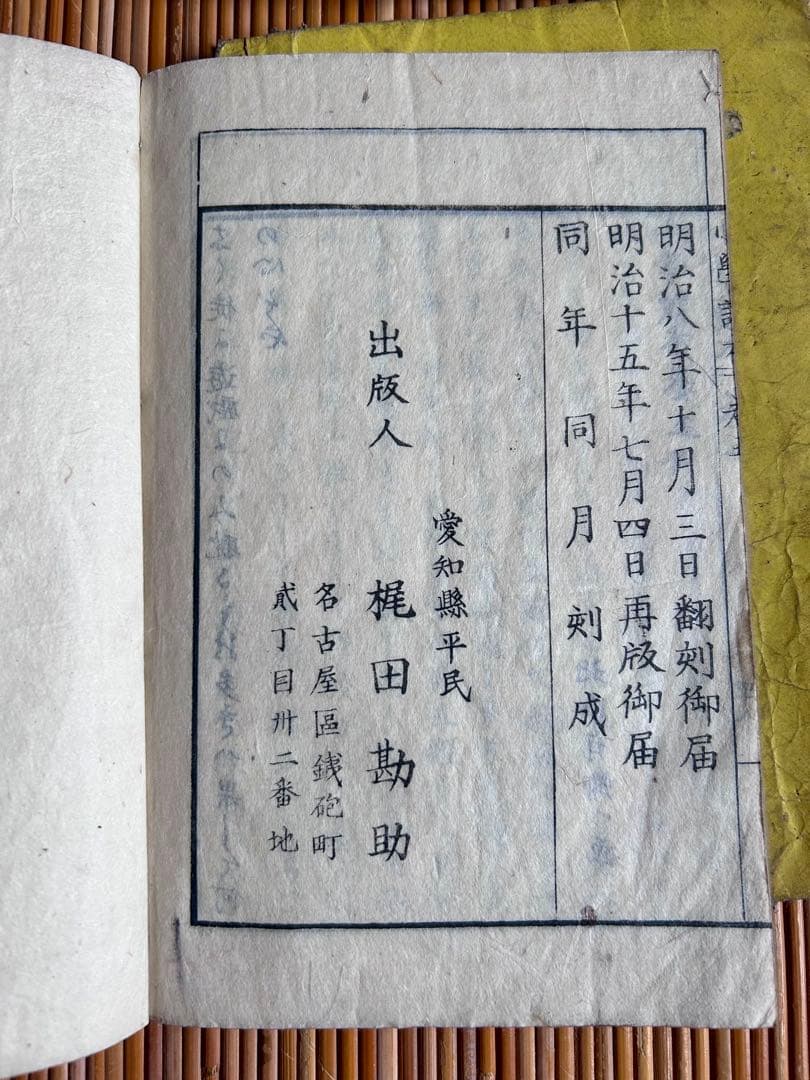 小學讀本卷
明治八年十月三日翻刻御届
明治十五年七月四日再版御届
同年同月刻成
愛知縣平民
出版人 梶田勘助
名古屋區鉄砲町
貳丁目卅二番地